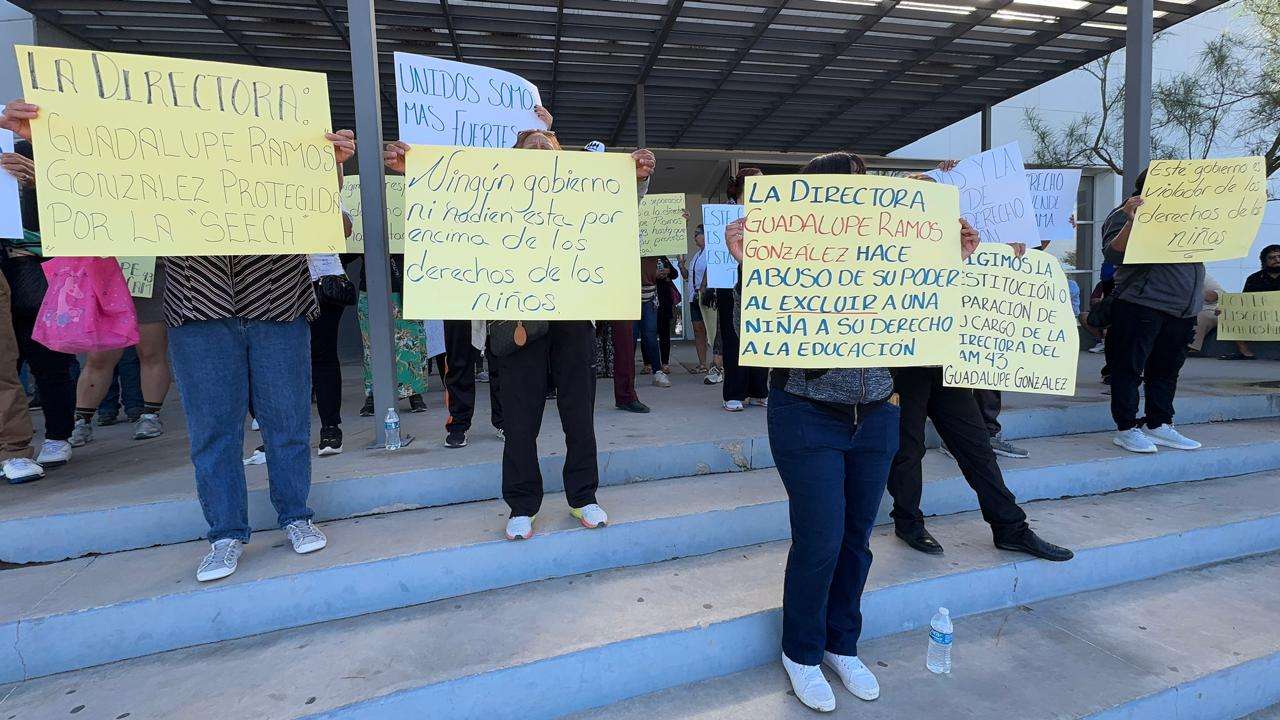 LA DIRECTORA:
GUADALUPE RAMOS
GONZALEZ PROTEGIDA
POR LA "SEECH"
UNIDOS SOMO
MAS FUERTES
Ningún gobierno
ni nadien esta por
encima de los
derechos de los
niños.
LA DIRECTORA
GUADALUPE RAMOS
GONZÁLEZ HACE
ABUSO DE SU PODER
AL EXCLUIR A UNA
NIÑA A SU DERECHO
A LA EDUCACIÓN
S Y LA
DE
DERECHO
IGIMOS LA
STITUCIÓN O
PARACIÓN DE
CARGO DE LA
IRECTORA DEL
AM 43
GUADALUPE GONZALEZ
Este gobierno es
violador de los
derechos de los
niños